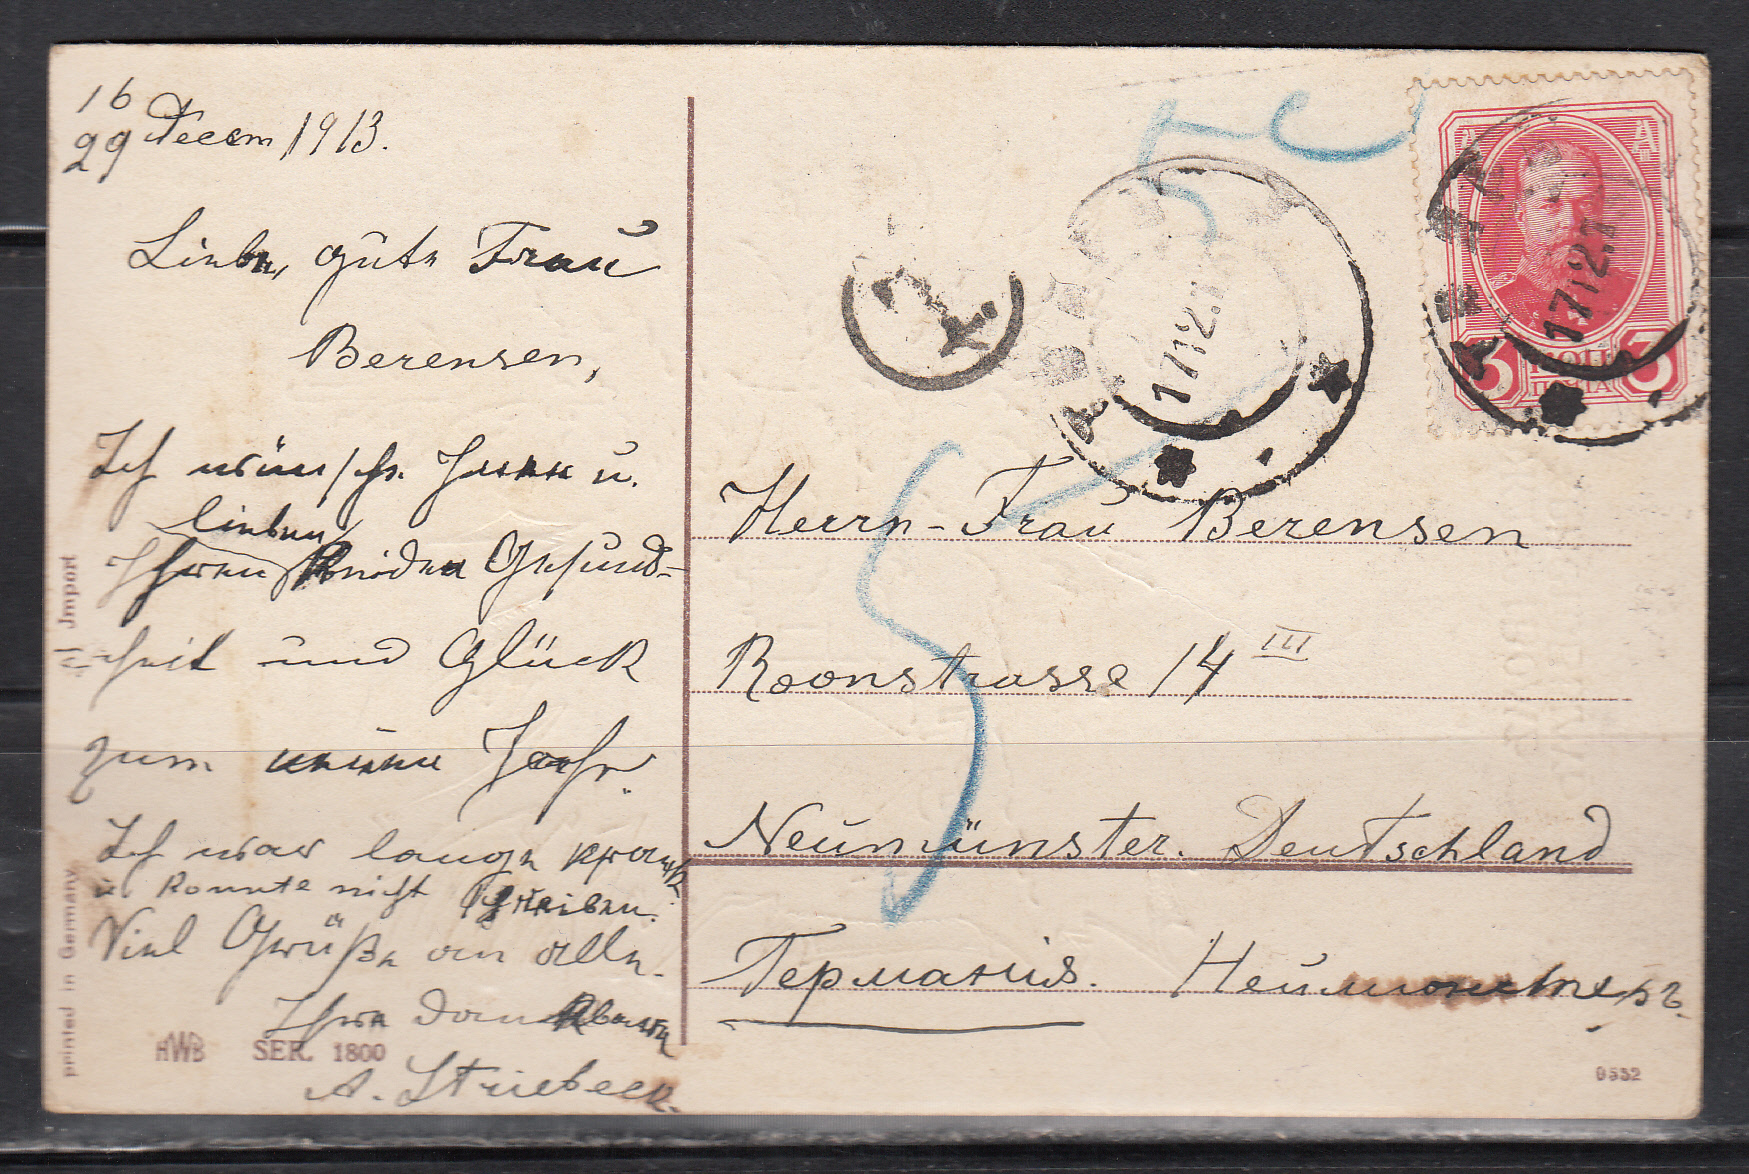 16
29 Decem 1913.
Liebe, gute Frau
Berensen,
Ich wünsche Ihnen u.
lieben
Ihren Kindern Gesund-
heit und Glück
zum neuen Jahr.
Ich war lange krank
u konnte nicht schreiben.
Viel Grüße an alle.
Ihre dankbare
A. Striebeck.
HWB SER. 1800
printed in Germany
Import
T.
17 12 13
17 12
3 КОП 3
ПОЧТА
5 c
5
Herrn-Frau Berensen
Roonstrasse 14 III
Neumünster. Deutschland
Германія.
0552